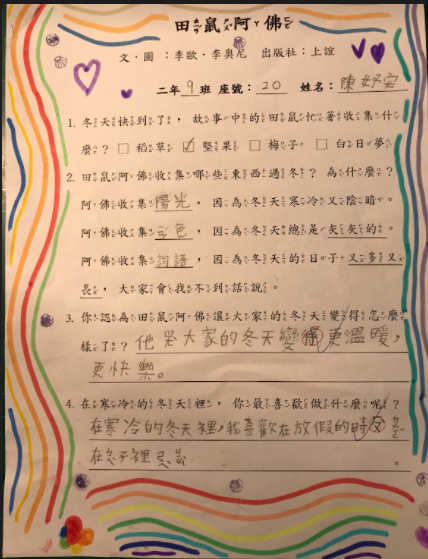 田鼠阿佛
文、圖：李歐·李奧尼 出版社：上誼
二年9班 座號：20 姓名：陳妤安
1. 冬天快到了，故事中的田鼠忙著收集什
麼？□稻草 ☑堅果 □梅子 □白日夢
2. 田鼠阿佛收集哪些東西過冬？為什麼？
阿佛收集陽光，因為冬天寒冷又陰暗。
阿佛收集 色，因為冬天總是灰灰的。
阿佛收集詞語，因為冬天的日子又多又
長，大家會找不到話說。
3. 你認為田鼠阿佛讓大家的冬天變得怎麼
樣了？他 大家的冬天變得更溫暖，
更快樂。
4. 在寒冷的冬天裡，你最喜歡做什麼呢？
在寒冷的冬天裡，我喜歡在放假的時
在 子裡